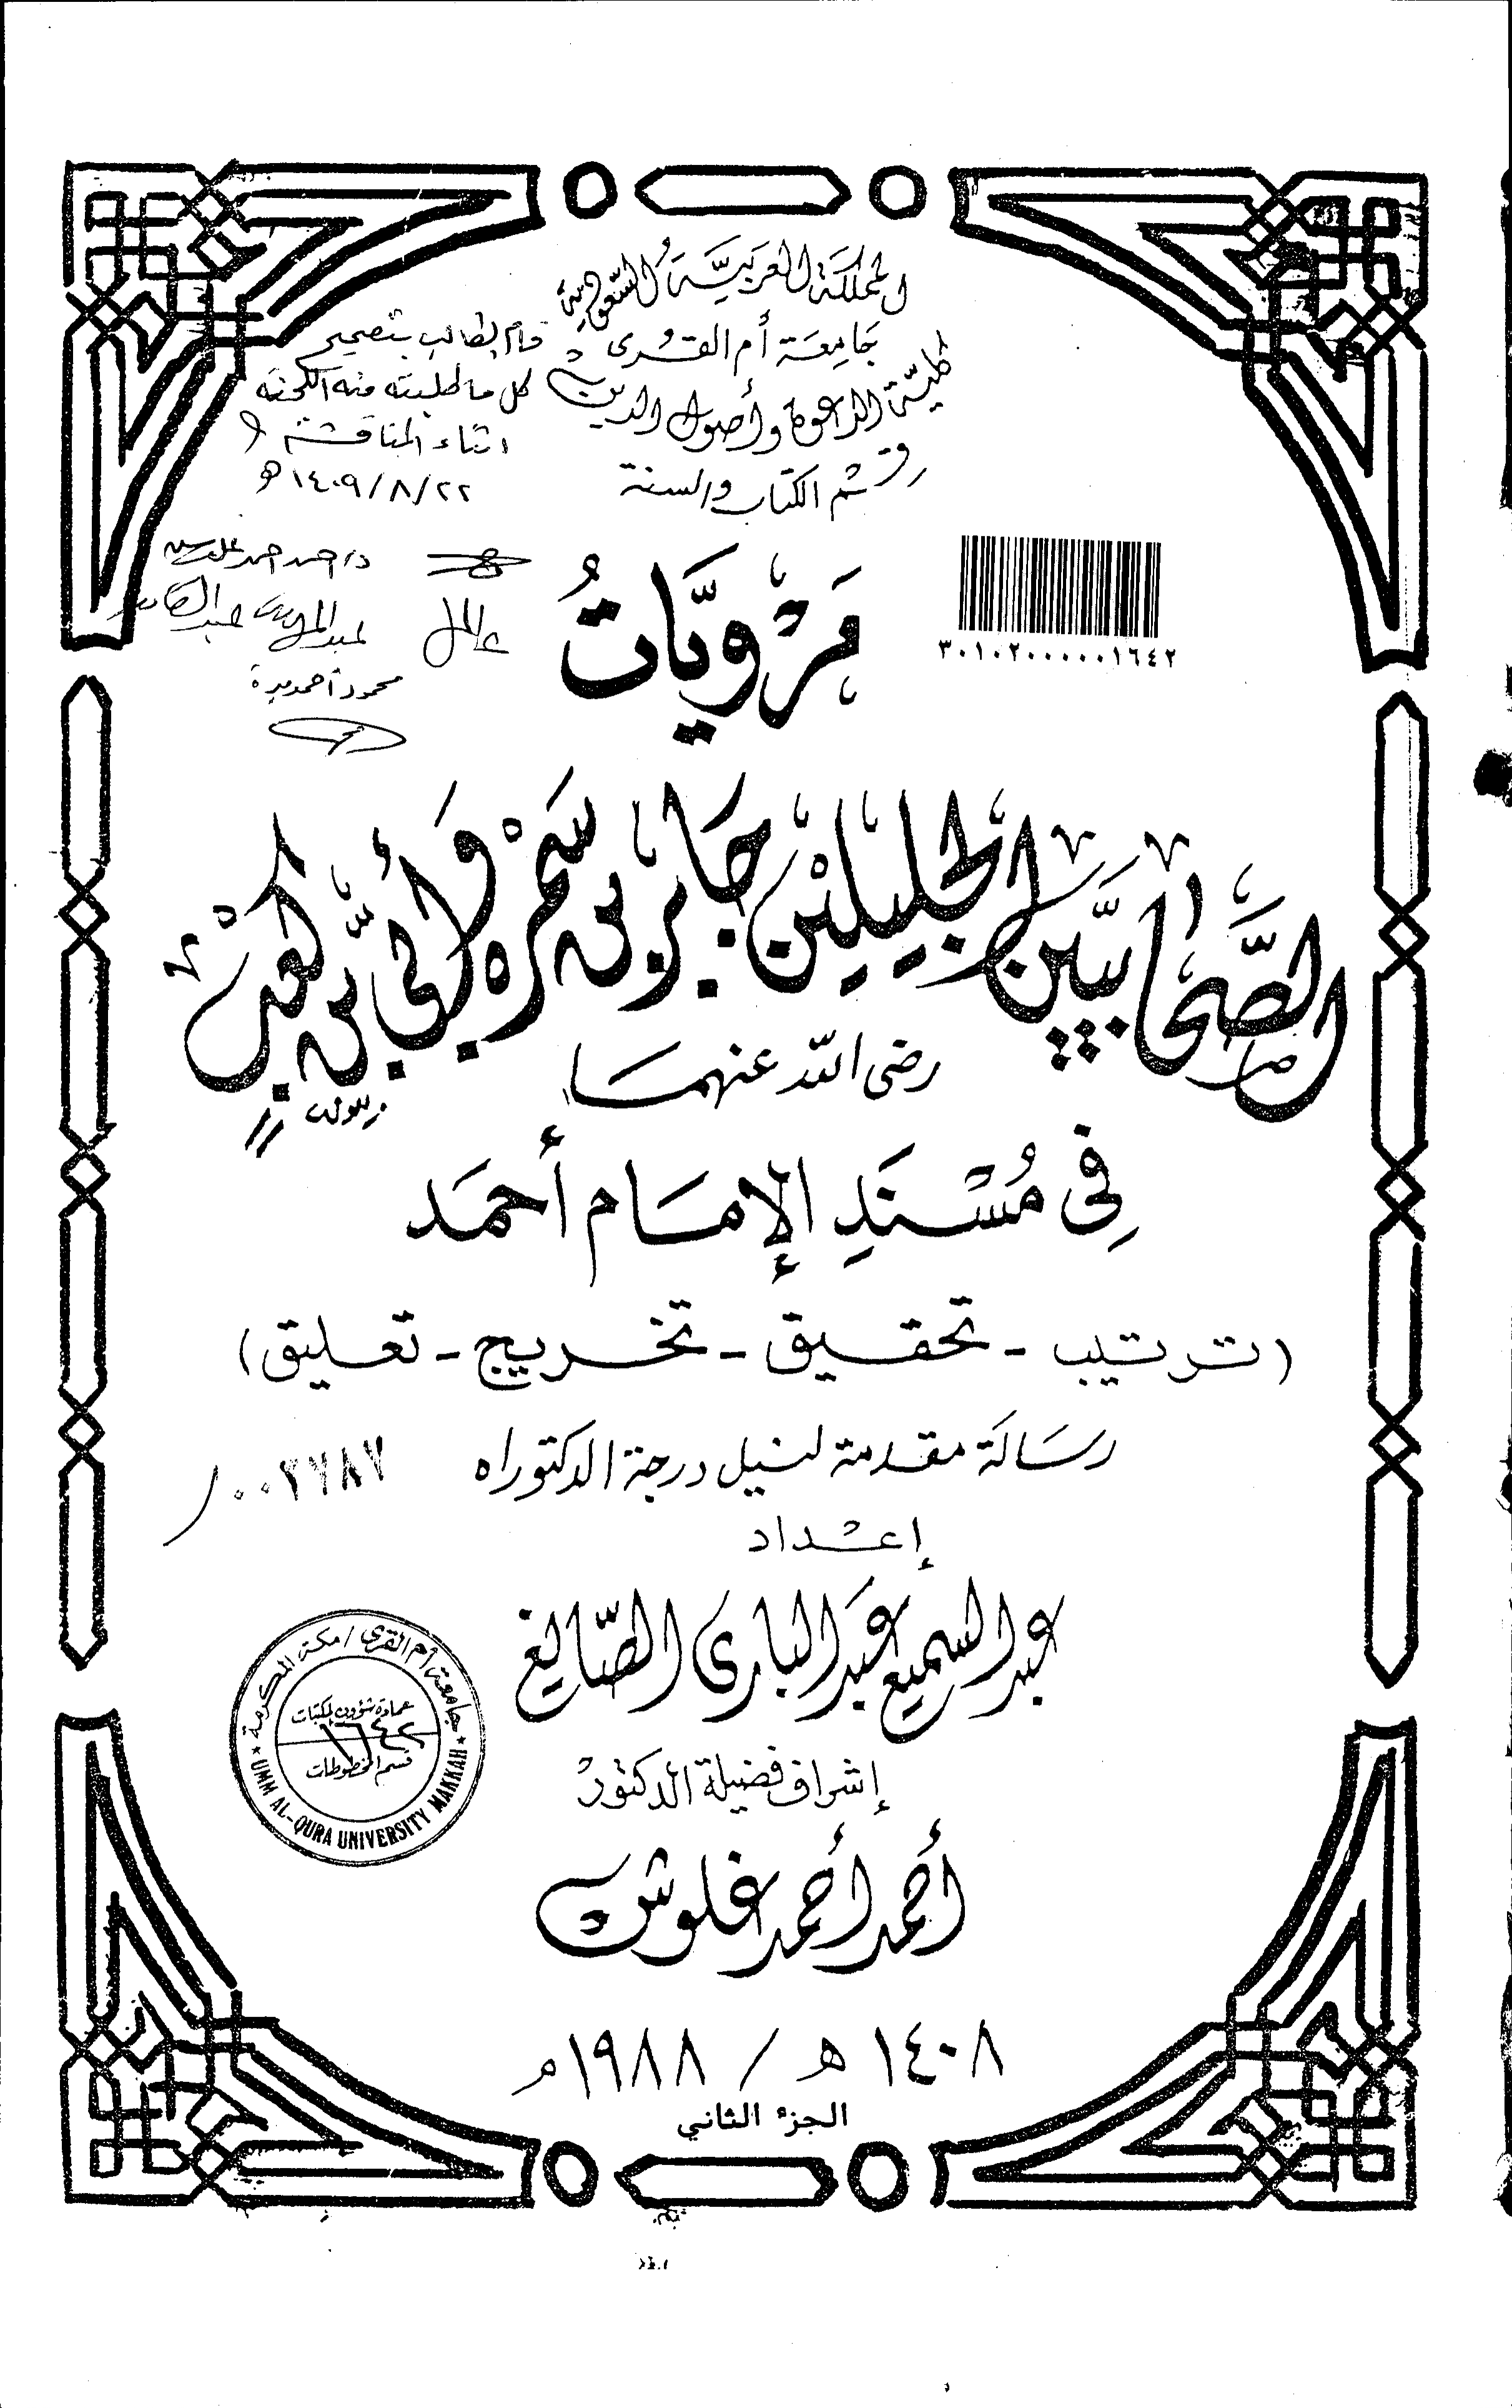 المملكة العربية السعودية
جامعة أم القرى
كلية الدعوة وأصول الدين
قسم الكتاب والسنة
قام الطالب بتصحيح
كل ما طلبته منه اللجنة
اثناء المناقشة
١٤٠٩/٨/٢٢ هـ
محمود أحمد ميرة
٣٠١٠٢٠٠٠٠٠١٦٤٢
مَرْوِيَّاتُ
الصَّحَابيَّين الجَليلَيْن جَابر بن سَمُرَه وَأُبَيّ بن كَعبْ
رضى الله عنهمَا
فِي مُسْنَدِ الإِمَام أَحمَد
(ترتيب - تحقيق - تخريج - تعليق)
رسَالَة مقدمة لنيل درجة الدكتوراه
٠٠٢٧٨٧
إعْداد
عبد السميع عَبد البارى الصَّايغ
إشراف فضيلة الدكتورْ
أَحمد أَحمد غلوش
جامعة أم القرى / مكة المكرمة
عمادة شؤون المكتبات
١٦٤٢
قسم المخطوطات
UMM AL-QURA UNIVERSITY MAKKAH
١٤٠٨ هـ / ١٩٨٨ م
الجزء الثاني